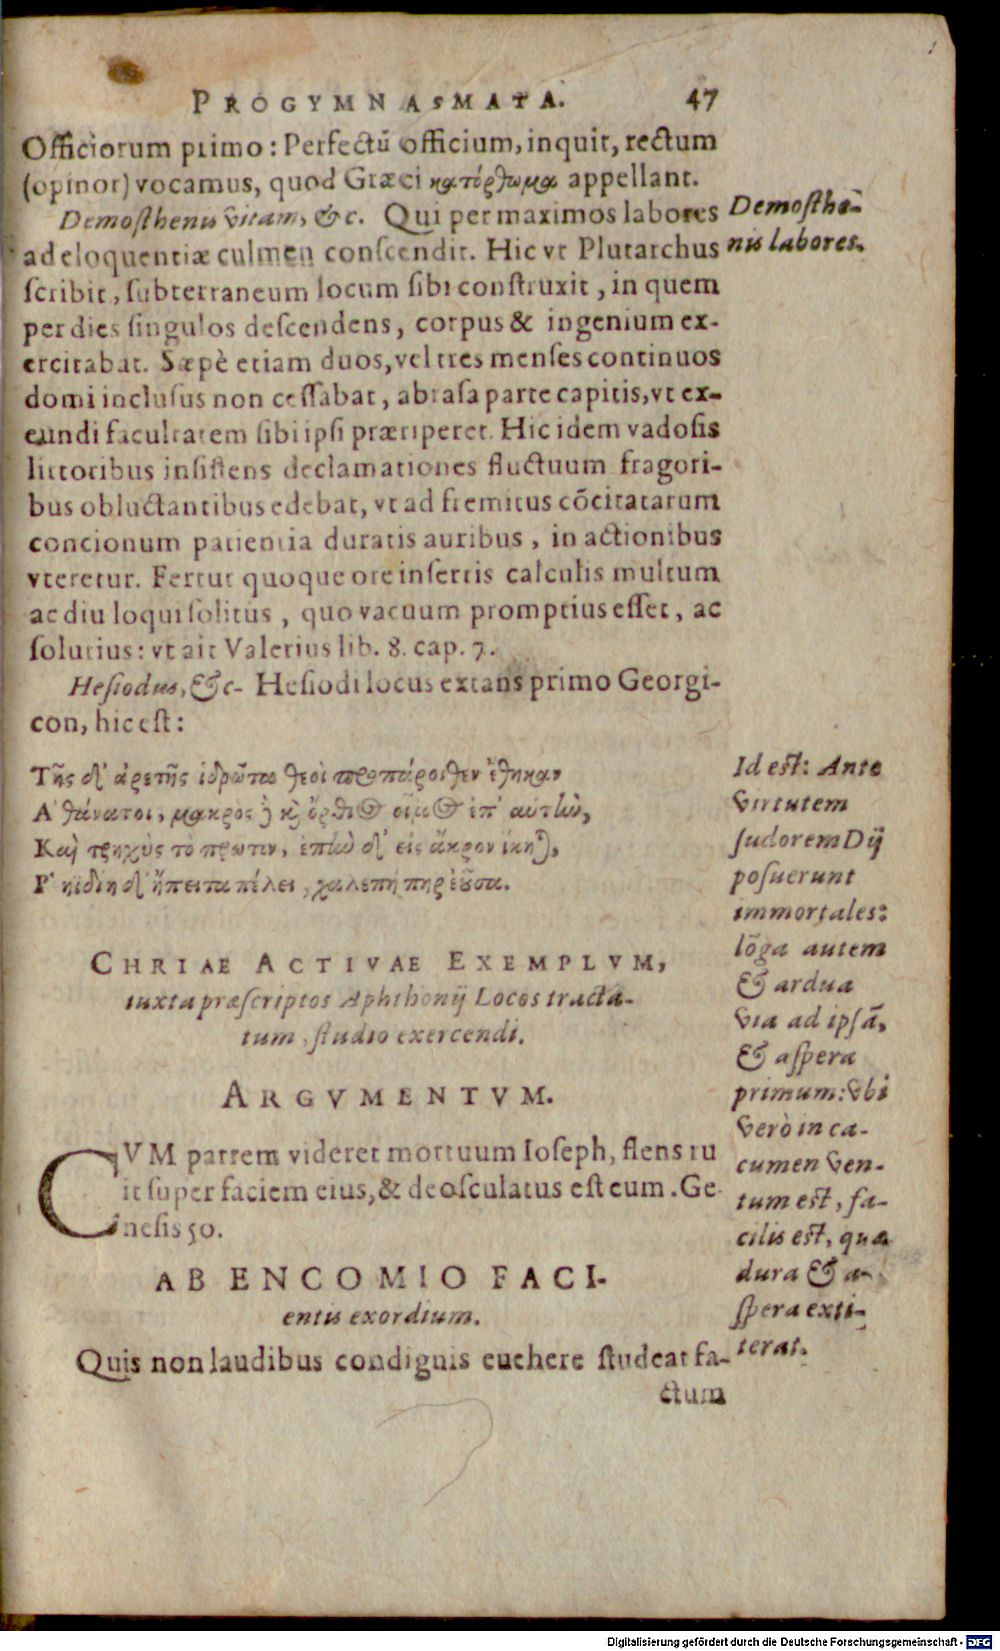 PROGYMNASMATA. 47
Officiorum primo: Perfectū officium, inquit, rectum
(opinor) vocamus, quod Græci κατόρθωμα appellant.
Demosthenis vitam, &c. Qui per maximos labores
ad eloquentiæ culmen conscendit. Hic vt Plutarchus
scribit, subterraneum locum sibi construxit, in quem
per dies singulos descendens, corpus & ingenium ex-
ercitabat. Sæpè etiam duos, vel tres menses continuos
domi inclusus non cessabat, abrasa parte capitis, vt ex-
eundi facultatem sibi ipsi præriperet. Hic idem vadosis
littoribus insistens declamationes fluctuum fragori-
bus obluctantibus edebat, vt ad fremitus cōcitatarum
concionum patientia duratis auribus, in actionibus
vteretur. Fertur quoque ore insertis calculis multum
ac diu loqui solitus, quo vacuum promptius esset, ac
solutius: vt ait Valerius lib. 8. cap. 7.
Hesiodus, &c. Hesiodi locus extans primo Georgi-
con, hic est:
Τῆς δ' ἀρετῆς ἱδρῶτα θεοὶ προπάροιθεν ἔθηκαν
Α'θάνατοι, μακρὸς ἢ κὶ ὄρθιος οἶμος ἐπ' αὐτὴν,
Καὶ τρηχὺς τὸ πρῶτιν, ἐπὴν δ' εἰς ἄκρον ἵκηται,
Ρ'ηϊδίη δ' ἤπειτα πέλει, χαλεπή περ ἐοῦσα.
CHRIAE ACTIVAE EXEMPLVM,
iuxta præscriptos Aphthonij Locos tracta-
tum, studio exercendi.
ARGVMENTVM.
CVM patrem videret mortuum Ioseph, flens ru
it super faciem eius, & deosculatus est eum. Ge-
nesis 50.
AB ENCOMIO FACI-
entis exordium.
Quis non laudibus condignis euehere studeat fa-
ctum
Demosthē-
nis labores.
Id est: Ante
virtutem
sudorem Dij
posuerunt
immortales:
lōga autem
& ardua
via ad ipsā,
& aspera
primum: vbi
verò in ca-
cumen ven-
tum est, fa-
cilis est, quæ
dura & a-
spera exti-
terat.
Digitalisierung gefördert durch die Deutsche Forschungsgemeinschaft - DFG